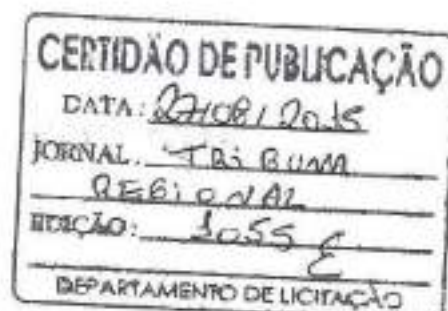 CERTIDÃO DE PUBLICAÇÃO
DATA: 27/08/2015
JORNAL. TRIBUNA
REGIONAL
EDIÇÃO: 1055 E
DEPARTAMENTO DE LICITAÇÃO